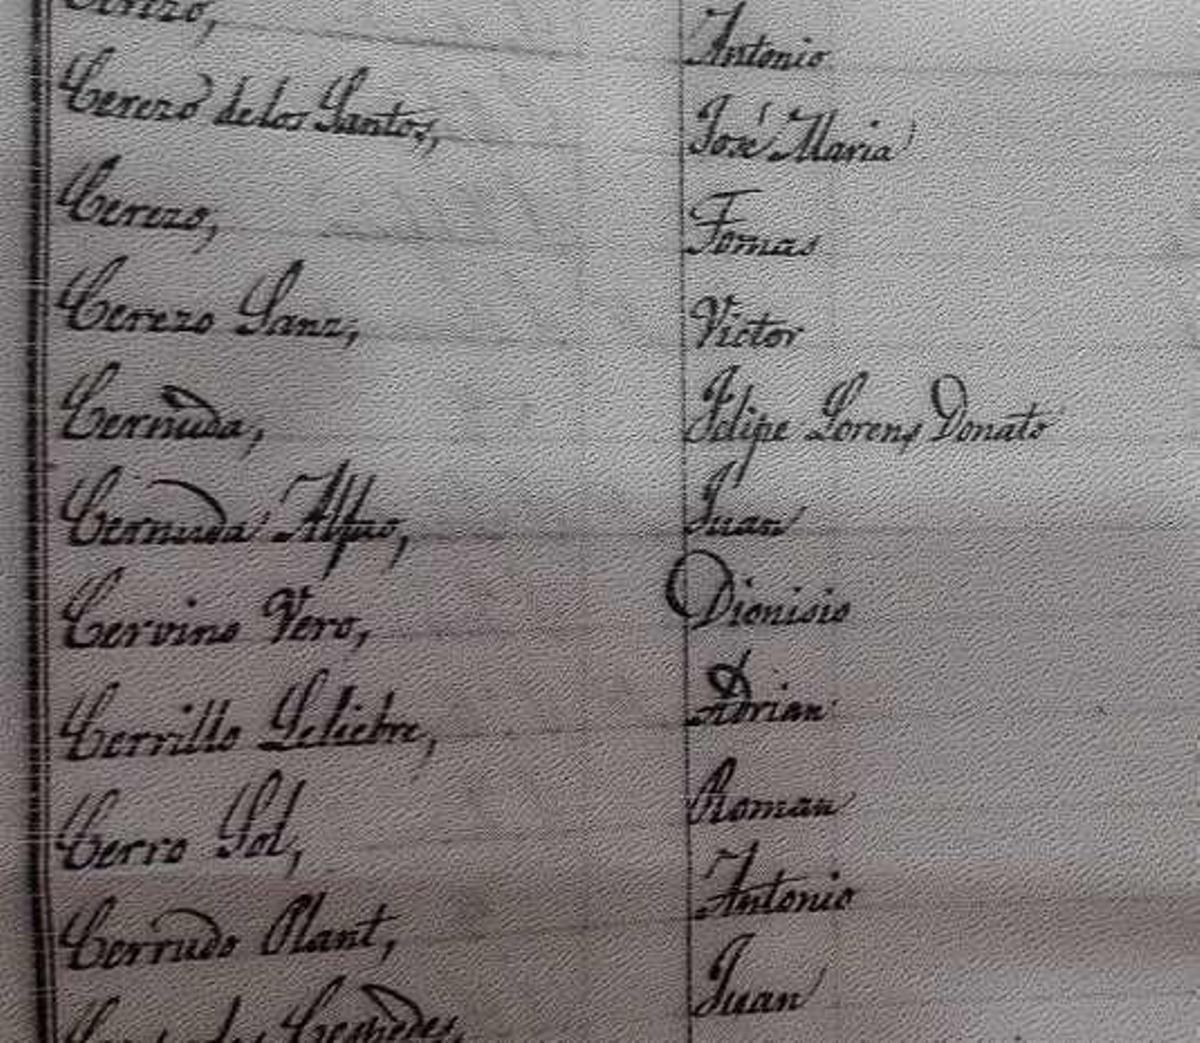 Cerezo, Antonio
Cerezo de los Santos, José Maria
Cerezo, Tomas
Cerezo Sanz, Victor
Cernuda, Felipe Lorenz Donato
Cernuda Juan
Cervino Vero, Dionisio
Cerrillo Leliebre, Adrian
Cerro Sol, Roman
Cerrudo Plant, Antonio
Cespedes, Juan